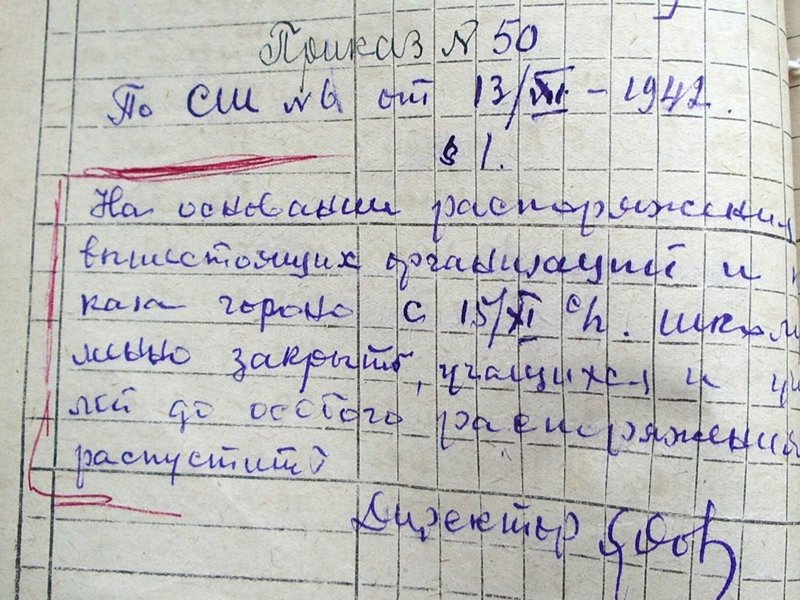 Приказ N 50
По СШ N6 от 13/XI - 1942.
§ 1.
На основании распоряжения
вышестоящих организаций и
каза гороно с 15/XI с/г. школ
мино закрыть, учащихся и
лей до особого распоряжения
распустить
Директор